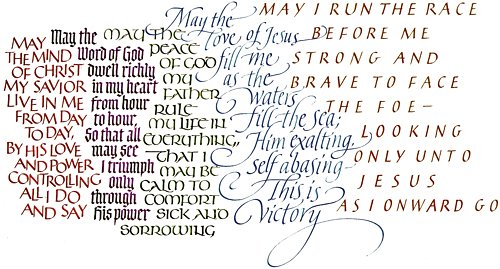 MAY
THE MIND
OF CHRIST
MY SAVIOR
LIVE IN ME
FROM DAY
TO DAY,
BY HIS LOVE
AND POWER
CONTROLLING
ALL I DO
AND SAY
May the
Word of God
dwell richly
in my heart
from hour
to hour,
So that all
may see
I triumph
only
through
His power
MAY THE
PEACE
OF GOD
MY
FATHER
RULE
MY LIFE IN
EVERYTHING,
THAT I
MAY BE
CALM TO
COMFORT
SICK AND
SORROWING
May the
Love of Jesus
fill me
as the
waters
fill the sea;
Him exalting,
self abasing—
This is
Victory
MAY I RUN THE RACE
BEFORE ME
STRONG AND
BRAVE TO FACE
THE FOE—
LOOKING
ONLY UNTO
JESUS
AS I ONWARD GO